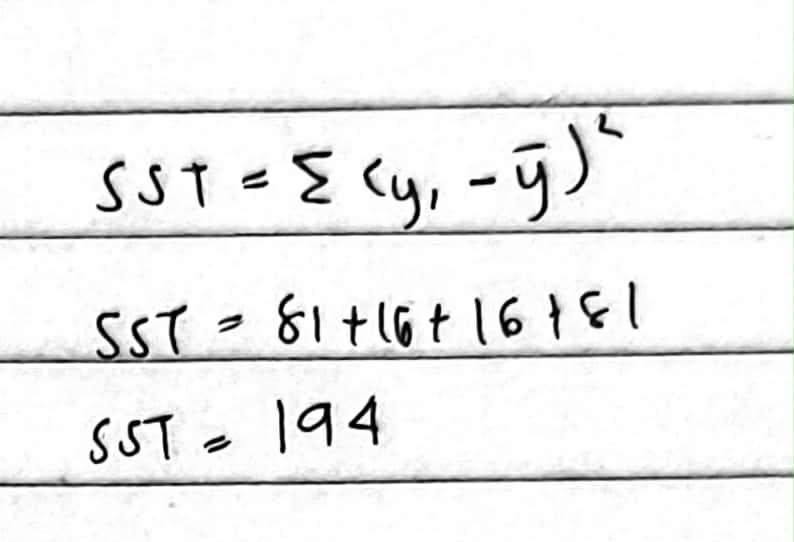 SST = Σ (yᵢ - ȳ)²
SST = 81 + 16 + 16 + 81
SST = 194